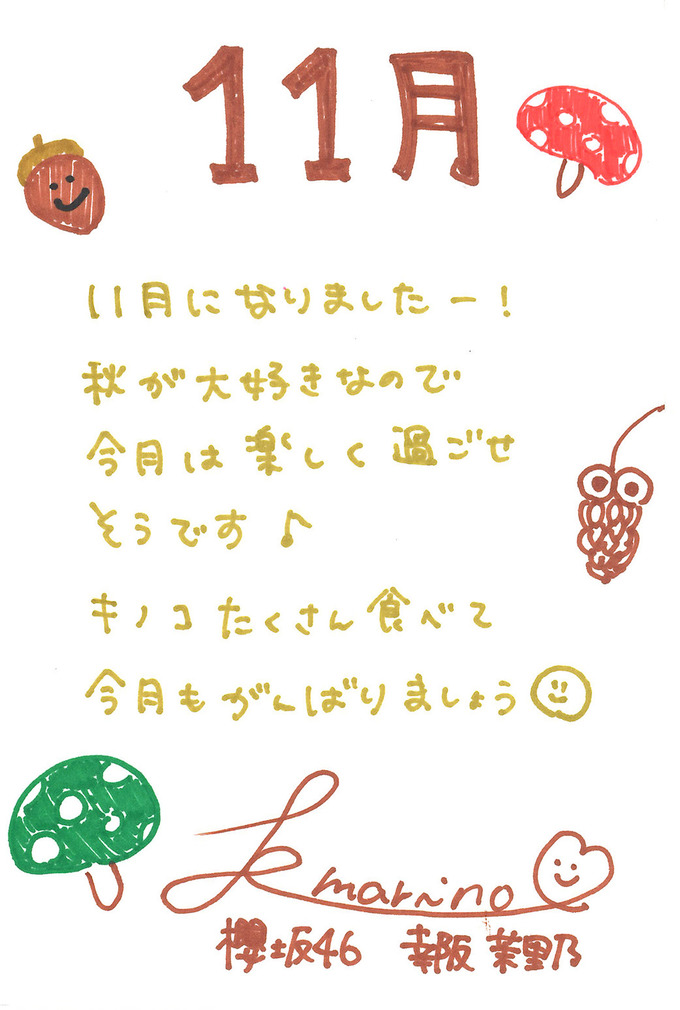 11月
11月になりましたー!
秋が大好きなので
今月は楽しく過ごせ
そうです♪
キノコたくさん食べて
今月もがんばりましょう
marino
櫻坂46 幸阪茉里乃